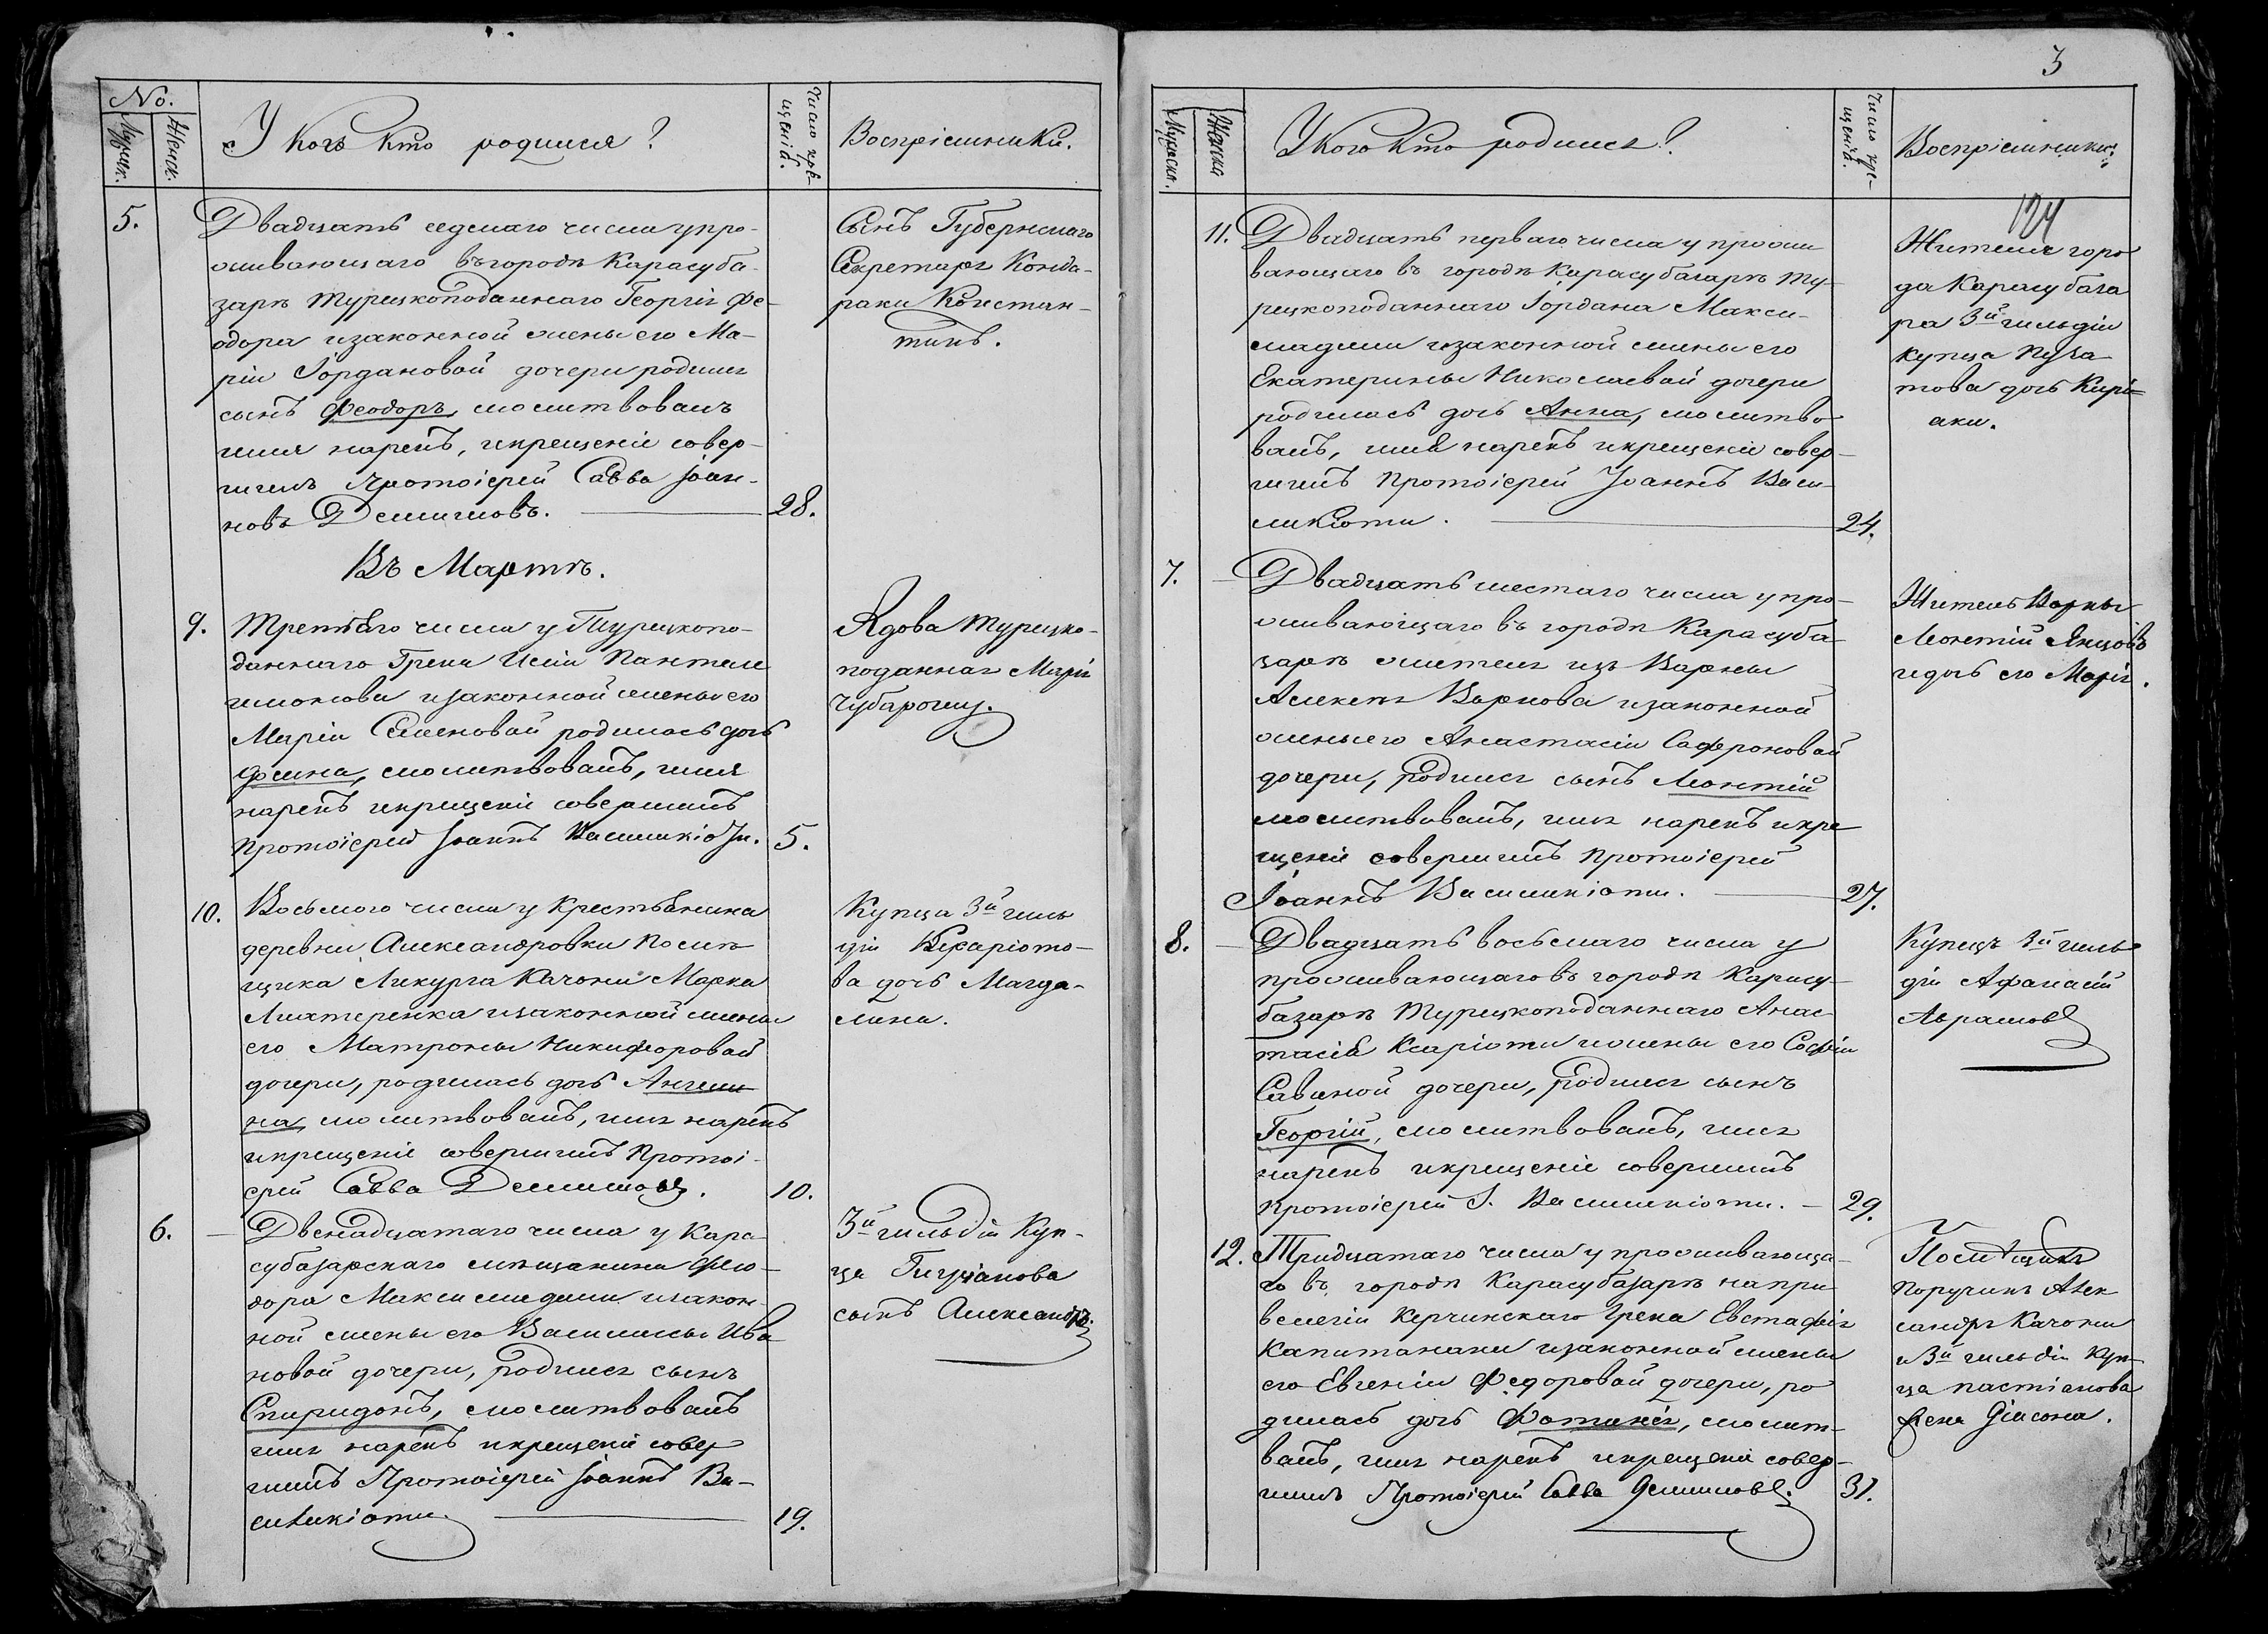 No.
Мужск.
Женск.
У кого кто родился?
Число кре-
щенiй.
Воспрiемники.
5.
Двадцать седмаго числа у про-
живающаго въ городѣ Карасуба-
зарѣ турецкоподаннаго Георгiя Фе-
одора и законной жены его Ма-
рiи Iордановой дочери родился
сынъ Феодоръ, молитвовалъ
имя нарекъ, и крещенiе совер-
шилъ Протоiерей Савва Iоан-
новъ Демишовъ.
28.
Сынъ Губернскаго
Секретаря Конда-
раки Констан-
тинъ.
Въ Мартѣ.
9.
Третьяго числа у Турецкопо-
даннаго Грека Илiи Пантеле
имонова и законной жены его
Марiи Семеновой родилась дочь
Домна, молитвовалъ, имя
нарекъ и крещенiе совершилъ
протоiерей Iоаннъ Василикiоти.
5.
Вдова турецко-
поданная Марiя
10.
Восьмого числа у крестьянина
деревни Александровки помѣ
щика Ликурга Качони Марка
и законной жены
его Матроны Никифоровой
дочери, родилась дочь Ангели
на, молитвовалъ, имя нарекъ
и крещенiе совершилъ протоi-
ерей Савва Демишовъ.
10.
Купца 3й гиль
дiи
ва дочь Магда-
лина.
6.
Двенадцатаго числа у Кара-
субазарскаго мѣщанина Фео-
дора Максимаджи и закон-
ной жены его Василисы Ива
новой дочери, родился сынъ
Спиридонъ, молитвовалъ
имя нарекъ и крещенiе совер
шилъ Протоiерей Iоаннъ Ва-
силикiоти.
19.
3й гильдiи Куп-
ца
сынъ Александръ.
3
Мужска.
Женска
У кого кто родился?
Число кре-
щенiй.
Воспрiемники.
124
11.
Двадцать перваго числа у прожи
вающаго въ городѣ Карасубазарѣ ту-
рецкоподаннаго Iордана Макси-
маджи и законной жены его
Екатерины Николаевой дочери
родилась дочь Анна, молитво
валъ, имя нарекъ и крещенiе совер-
шилъ протоiерей Iоаннъ Васи-
ликiоти.
24.
Жителя горо
да Карасубаза
ра 3й гильдiи
купца Пуза
това дочь Кирi-
аки.
7.
Двадцать шестаго числа у про-
живающаго въ городѣ Карасуба
зарѣ жителя изъ Варны
Алексѣя Варнова и законной
жены его Анастасiи Сафроновой
дочери, родился сынъ Леонтiй
молитвовалъ, имя нарекъ и кре
щенiе совершилъ протоiерей
Iоаннъ Василикiоти.
27.
Житель Варны
Леонтiй Янцовъ
и дочь его Марiя.
8.
Двадцать восьмаго числа у
проживающаго въ городѣ Карасу-
базарѣ Турецкоподаннаго Анас-
тасiя Ксарiоти и жены его Софiи
Савиной дочери, родился сынъ
Георгiй, молитвовалъ, имя
нарекъ и крещенiе совершилъ
протоiерей I. Василикiоти.
29.
Купецъ 3й гиль
дiи Афанасiй
Аврамовъ
12.
Тридцатаго числа у проживающа-
го въ городѣ Карасубазарѣ на при
велегiи Керчинскаго грека Евстафiя
Капитанаки и законной жены
его Евгенiи Федоровой дочери, ро
дилась дочь Фотинiя, молит-
валъ, имя нарекъ и крещенiе совер-
шилъ Протоiерей Савва Демишовъ.
31.
Помѣщикъ
поручикъ Алек
сандръ Качони
и 3й гильдiи куп-
ца
жена